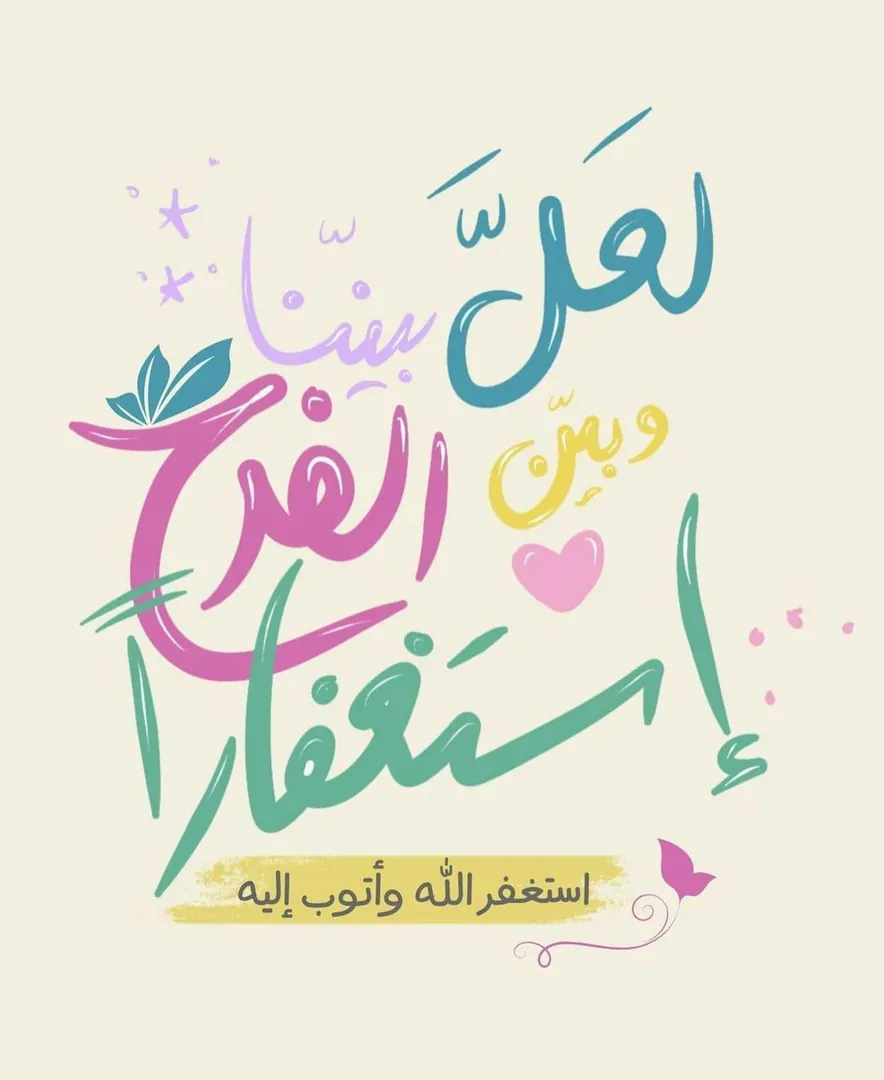 لعلَّ بيننا
وبين الفرح
إستغفاراً
استغفر الله وأتوب إليه